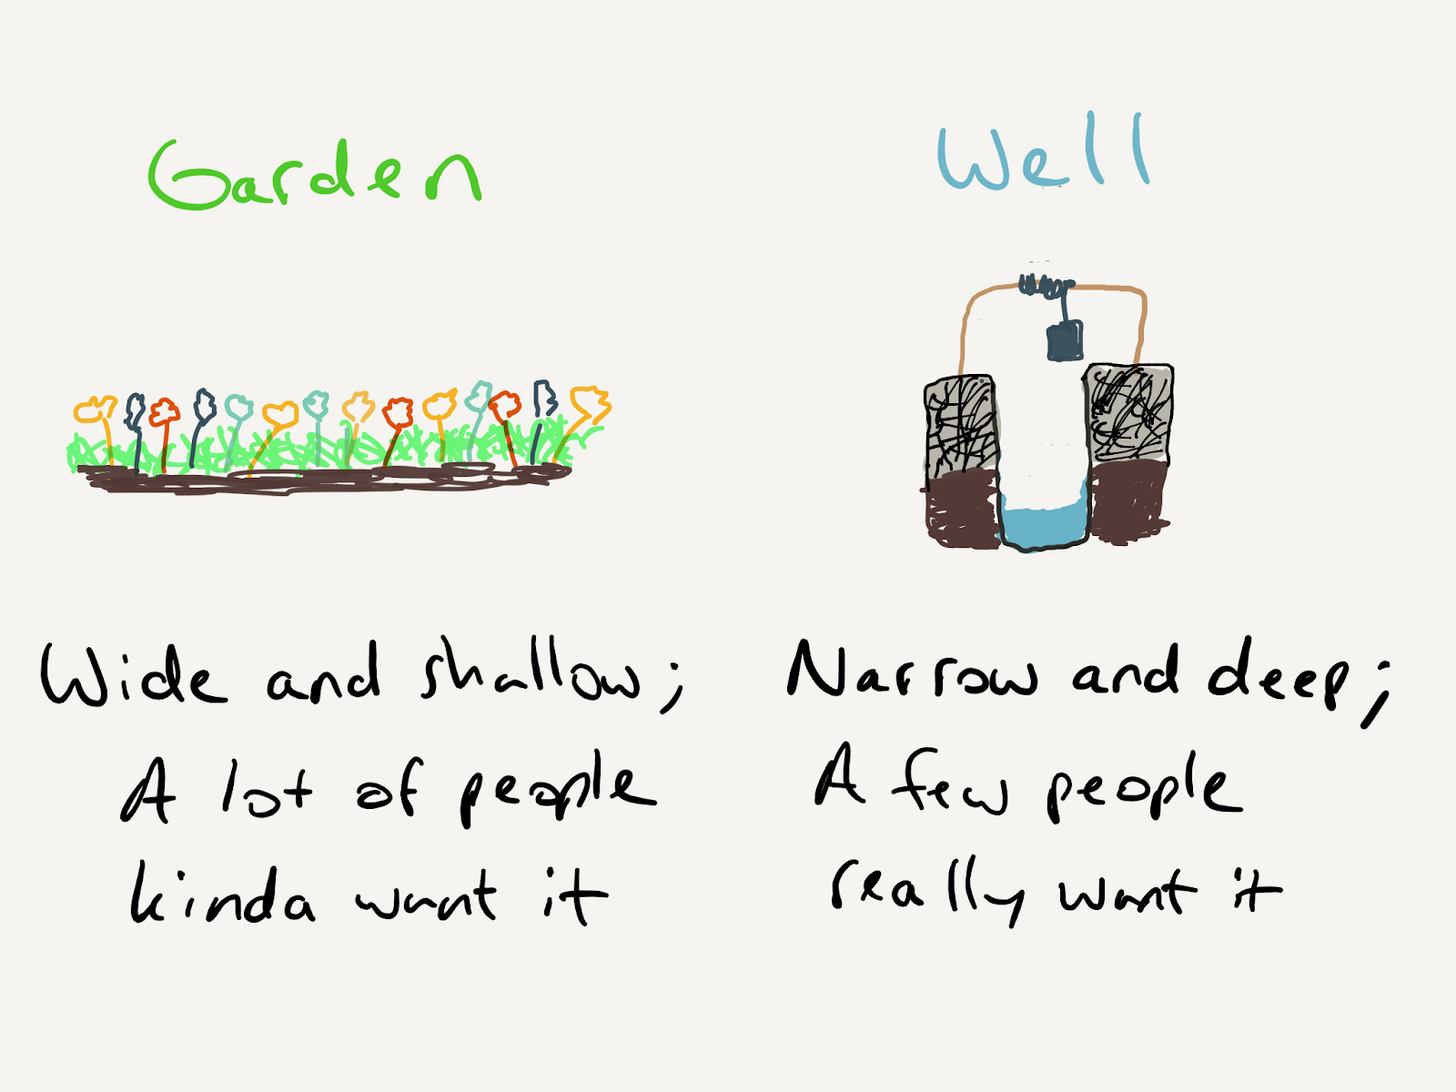 Garden
Wide and shallow;
A lot of people
kinda want it
Well
Narrow and deep;
A few people
really want it